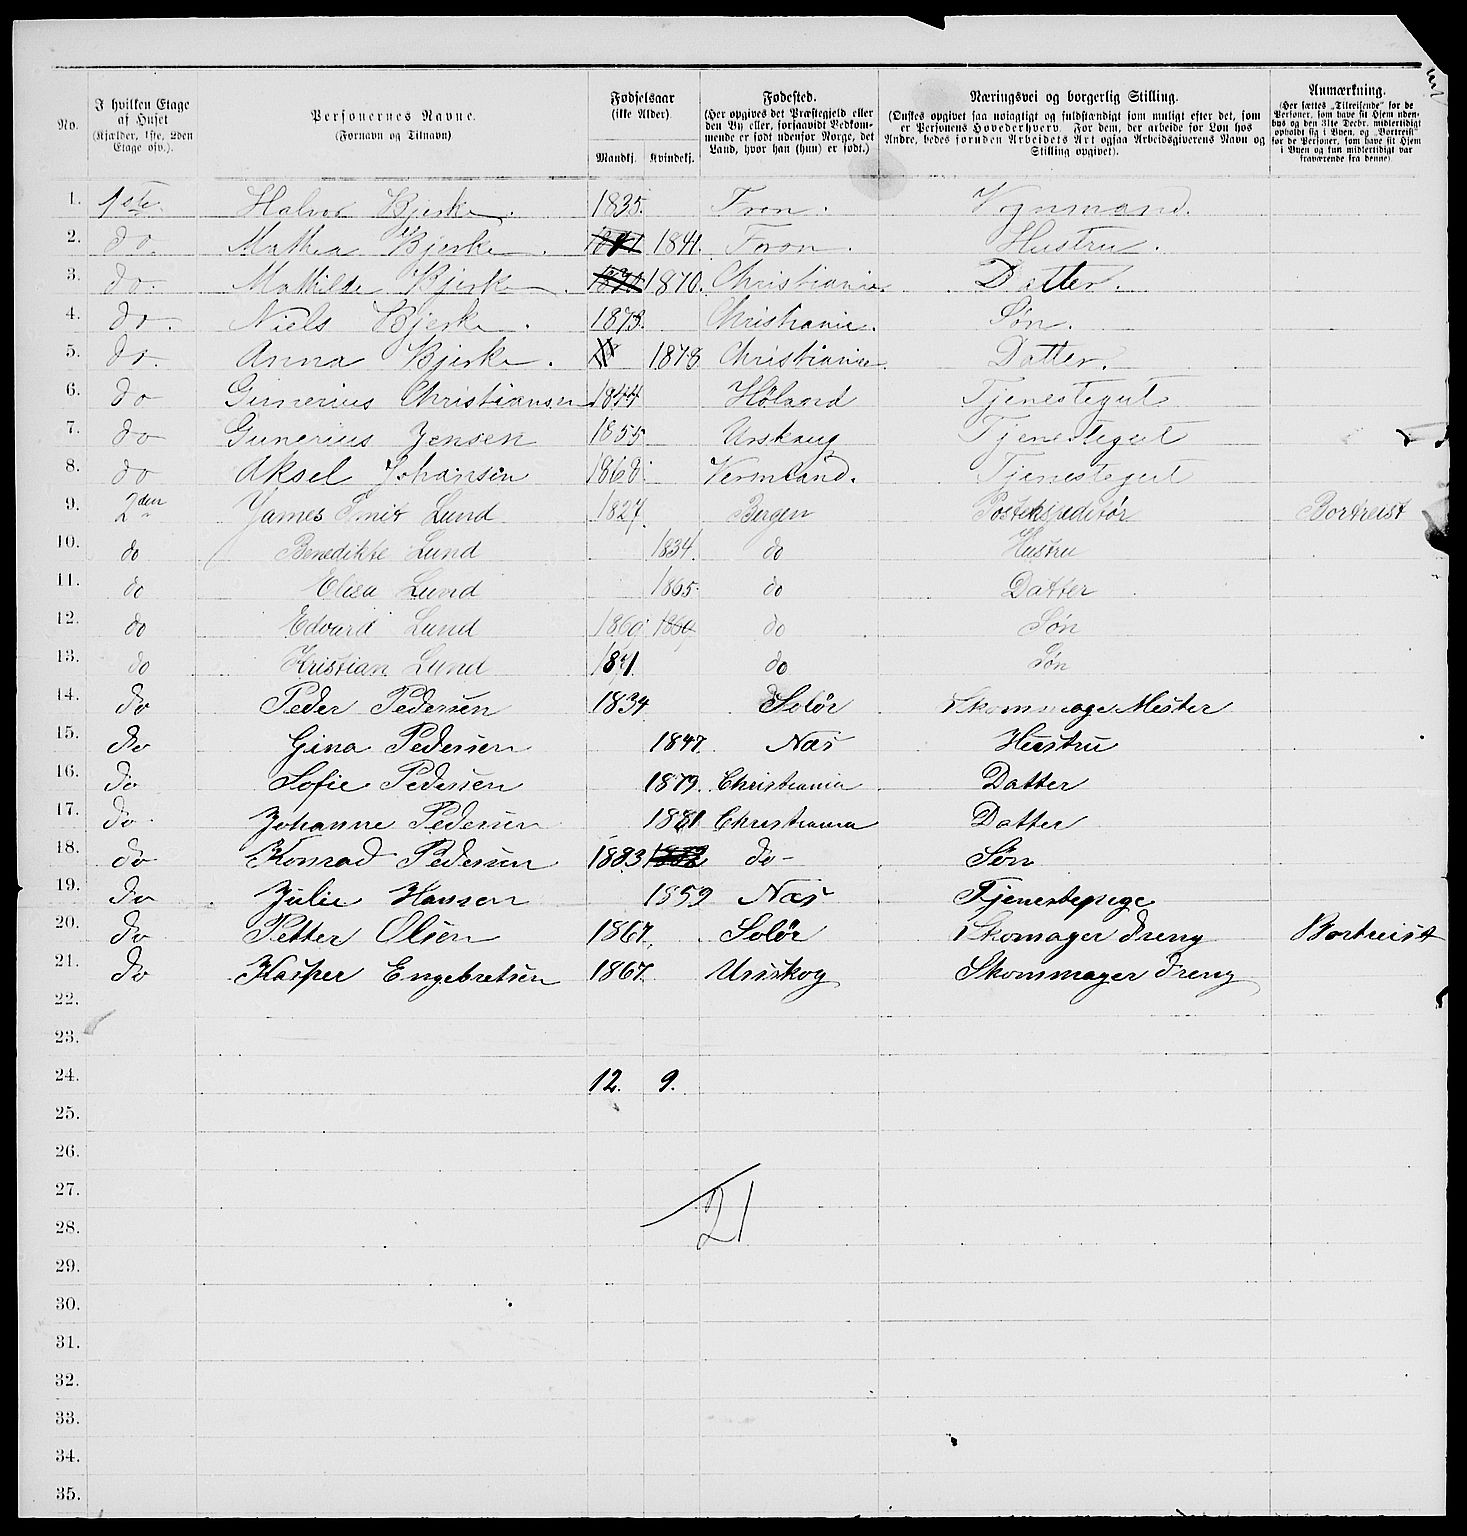 No.
I hvilken Etage af Huset (Kjælder, 1ste, 2den Etage osv.).
Personernes Navne. (Fornavn og Tilnavn)
Fødselsaar (ikke Alder). Mandkj. Kvindekj.
Fødested. (Her opgives det Præstegjeld eller den By eller, forsaavidt Vedkommende er født udenfor Norge, det Land, hvor han (hun) er født.)
Næringsvei og borgerlig Stilling. (Ønskes opgivet saa nøiagtigt og fuldstændigt som muligt efter det, som er Personens Hovederhverv. For dem, der arbeide for Løn hos Andre, bedes foruden Arbeidets Art ogsaa Arbeidsgiverens Navn og Stilling opgivet).
Anmærkning. (Her sættes „Tilreisende" for de Personer, som have sit Hjem udenbys og den 31te Decbr. midlertidigt opholdt sig i Byen, og „Bortreist" for de Personer, som have sit Hjem i Byen og kun midlertidigt var fraværende fra denne)
1. 1ste. Halvor Bjerke. 1835. Fron. Vognmand.
2. do. Mathea Bjerke. 1841 1841. Fron. Hustru.
3. do. Mathilde Bjerke. 1870 1870. Christiania. Datter.
4. do. Niels Bjerke. 1873. Christiania. Søn.
5. do. Anna Bjerke. 1878 Christiania. Datter.
6. do Gunerius Christiansen 1844 Høland Tjenestegut
7. do Gunerius Jensen 1855. Urskoug Tjenestegut
8. do Aksel Johansen 1868. Vermland. Tjenestegut
9. 2den James Smit Lund 1827. Bergen Postekspeditør Bortreist
10. do Benedikte Lund 1834. do Hustru
11. do Elisa Lund 1865. do Datter
12. do Edvard Lund 1869. 1869 do Søn
13. do Kristian Lund 1871. do Søn
14. do Peder Pedersen 1834 do Solør Skommager Mester
15. do Gina Pedersen 1847. Næs Hustru
16. do Sofie Pedersen 1879. Christiania Datter
17. do. Johanne Pedersen 1881. Christiania Datter
18. do Konrad Pedersen 1883 1883 do- Søn
19. do Julie Hansen 1859 Næs Tjenestepige
20. do Petter Olsen 1867. Solør Skomager dreng Bortreist
21. do Kasper Engebretsen 1867. Urskog Skommager dreng
22.
23.
24. 12. 9.
25.
26.
27.
21
28.
29.
30.
31.
32.
33.
34.
35.